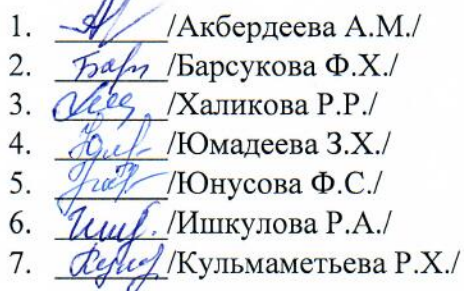 1. /Акбердеева А.М./
2. /Барсукова Ф.Х./
3. /Халикова Р.Р./
4. /Юмадеева З.Х./
5. /Юнусова Ф.С./
6. /Ишкулова Р.А./
7. /Кульмаметьева Р.Х./